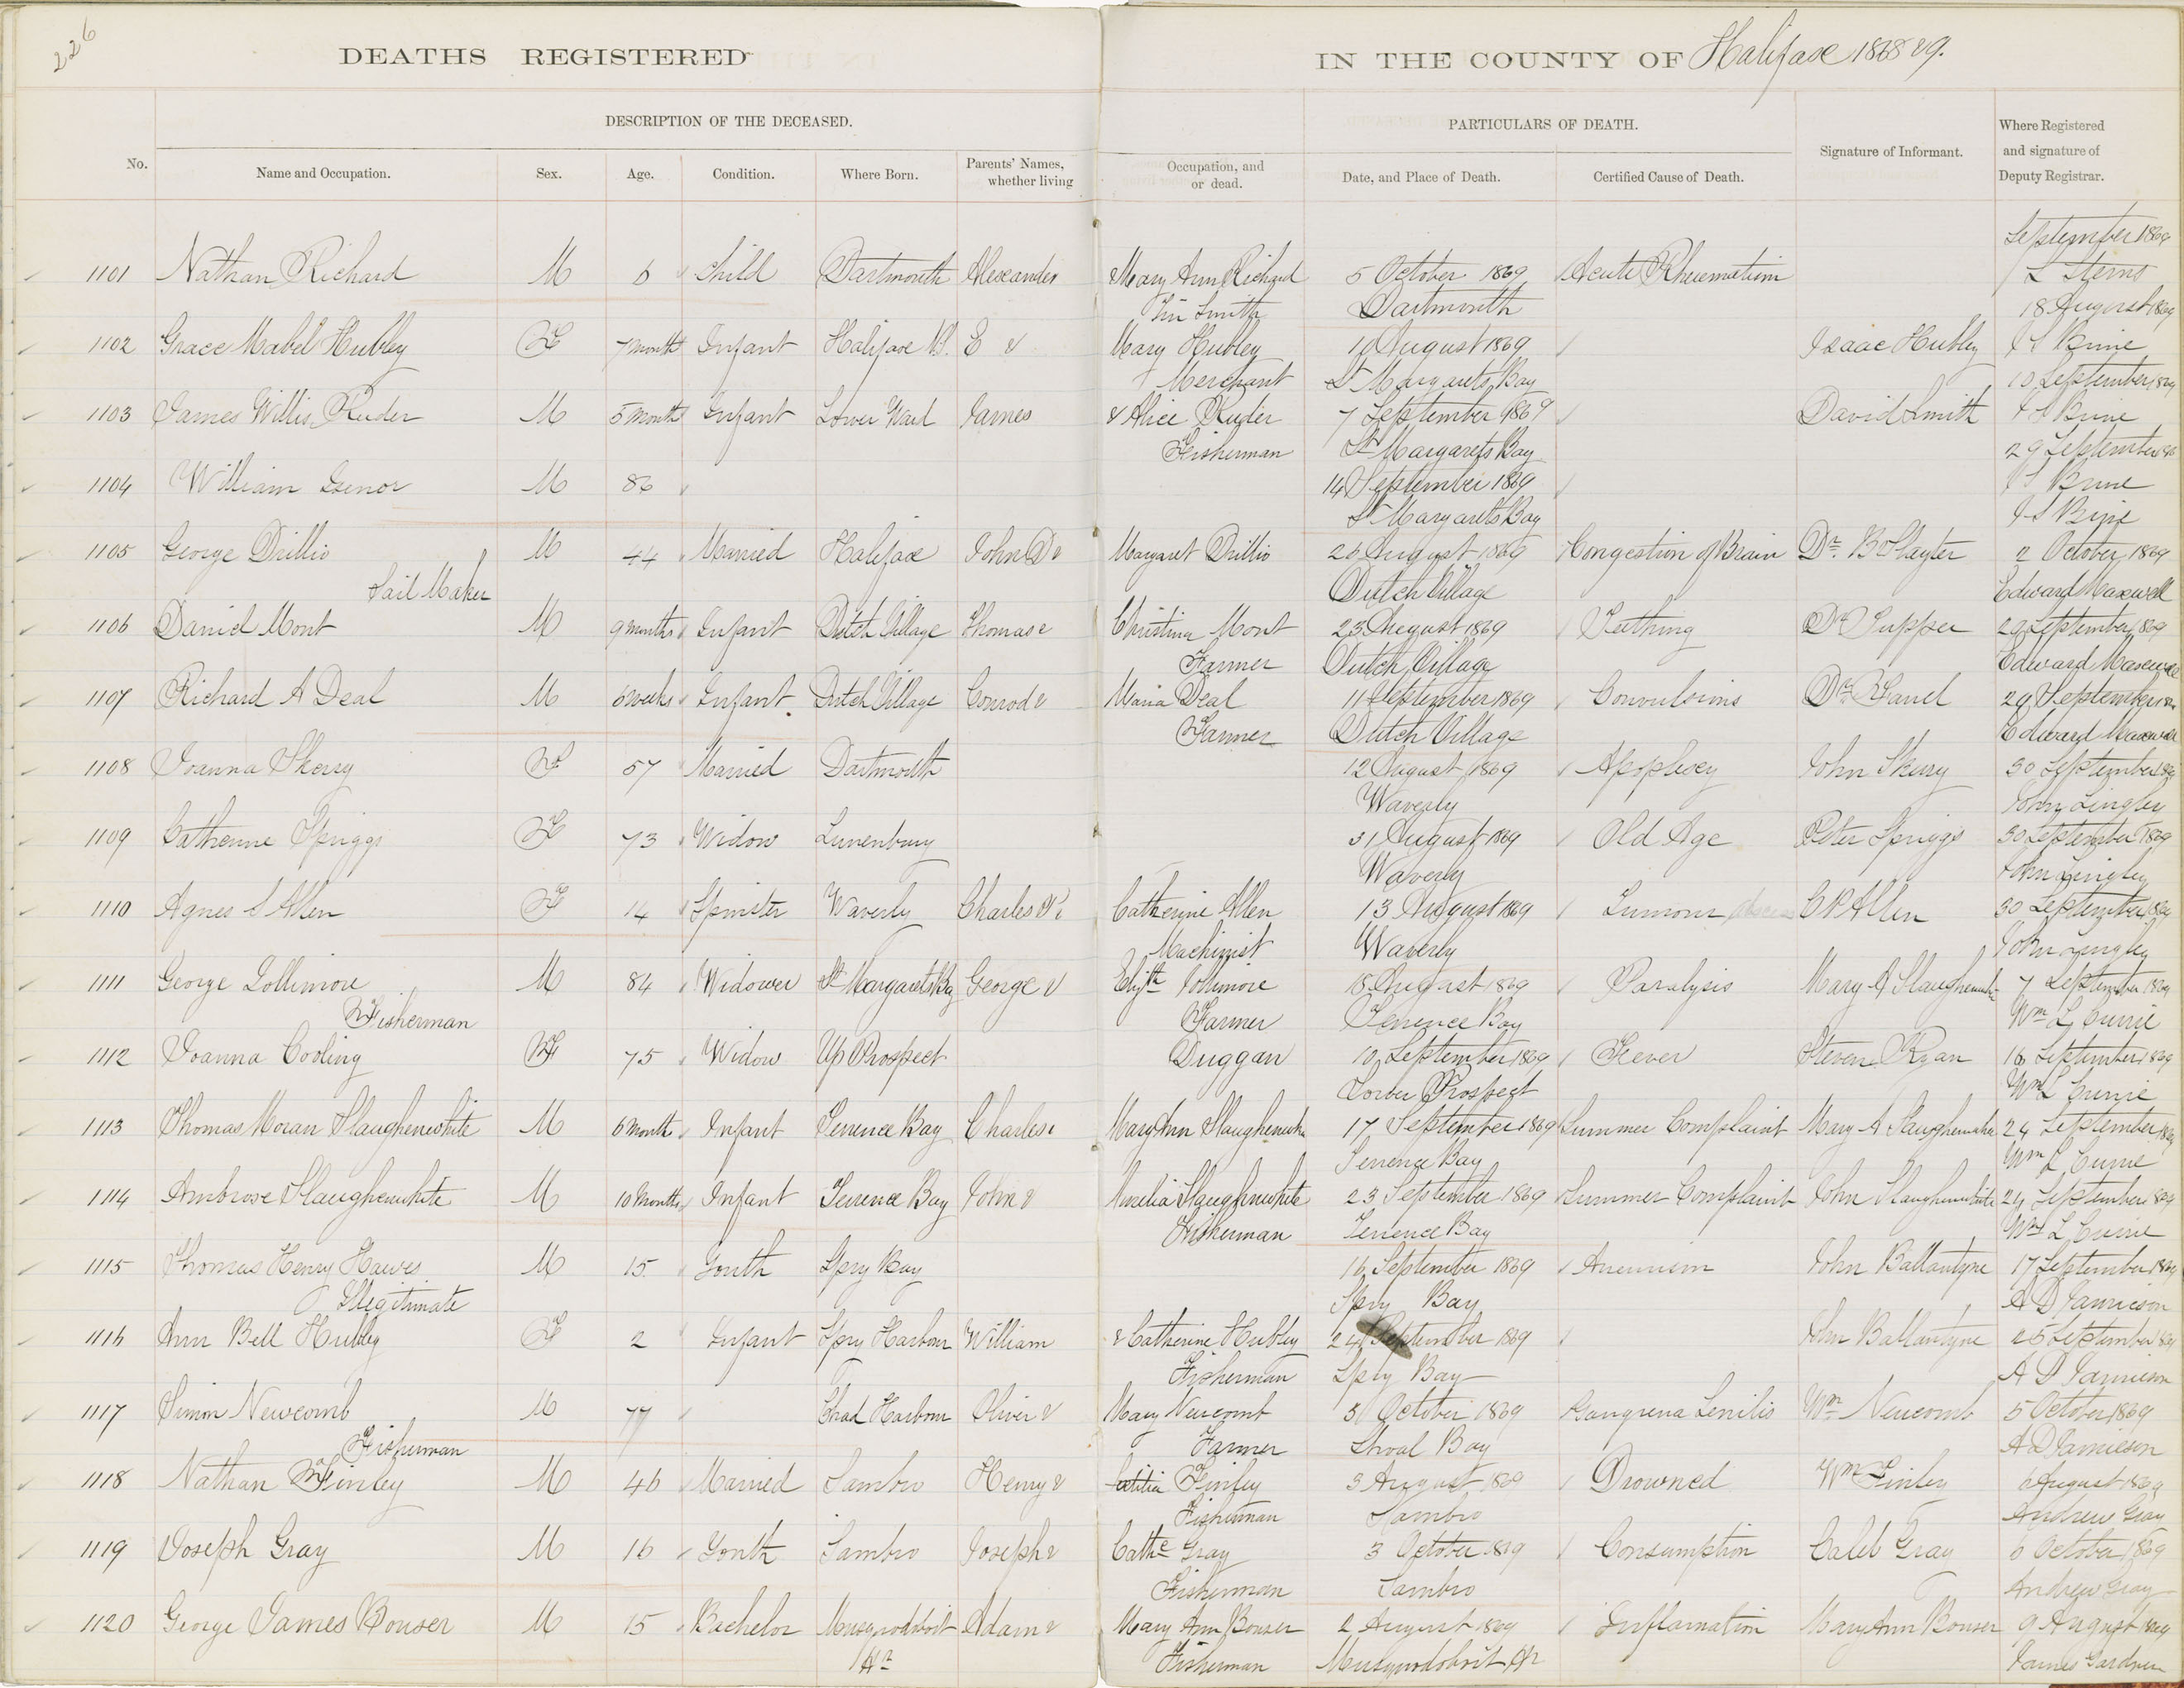 226
DEATHS REGISTERED IN THE COUNTY OF Halifax 1868 & 9.
DESCRIPTION OF THE DECEASED. PARTICULARS OF DEATH. Signature of Informant. Where Registered and signature of Deputy Registrar.
No. Name and Occupation. Sex. Age. Condition. Where Born. Parents' Names, whether living Occupation, and or dead. Date, and Place of Death. Certified Cause of Death.
September 1869
1101 Nathan Richard M 6 Child Dartmouth Alexander & Mary Ann Richard 5 October 1869 Acute Rheumatism L Sterns
Tin Smith Dartmouth 18 August 1869
1102 Grace Mabel Hubley F 7 months Infant Halifax E & Mary Hubley 10 August 1869 Isaac Hubley J S Brine
Merchant St Margarets Bay 10 September 1869
1103 James Willis Ruder M 5 months Infant Lower Ward James & Alice Ruder 7 September 1869 David Smith J S Brine
Fisherman St Margarets Bay 29 September
1104 William Isenor M 86 14 September 1869 J S Brine
St Margarets Bay J S Brine
1105 George Drillio M 44 Married Halifax John D & Margaret Drillio 26 August 1869 Congestion of Brain Dr. B Slayter 2 October 1869
Sail Maker Dutch Village Edward Maxwell
1106 Daniel Mont M 9 months Infant Dutch Village Thomas & Christina Mont 23 August 1869 Teething Dr Tupper 29 September 1869
Farmer Dutch Village Edward Maxwell
1107 Richard A Deal M 6 weeks Infant Dutch Village Conrod & Maria Deal 11 September 1869 Convulsions Dr 29 September
Farmer Dutch Village Edward Maxwell
1108 Joanna Skerry F 57 Married Dartmouth 12 August 1869 Apoplexy John Skerry 30 September 1869
Waverly John Lingley
1109 Catherine Spriggs F 73 Widow Lunenburg 31 August 1869 Old Age Peter Spriggs 30 September 1869
Waverly John Lingley
1110 Agnes S Allen F 14 Spinster Waverly Charles P & Catherine Allen 13 August 1869 Tumour C P Allen 30 September 1869
Machinist Waverly John Lingley
1111 George Jollimore M 84 Widower St Margarets Bay George & Elizth Jollimore 18 August 1869 Paralysis Mary A Slaughenwhite 7 September 1869
Fisherman Farmer Terrence Bay Wm L Currie
1112 Joanna Cooling F 75 Widow Up Prospect Duggan 10 September 1869 Fever Steven Ryan 16 September 1869
Lower Prospect Wm L Currie
1113 Thomas Moran Slaughenwhite M 6 months Infant Terrence Bay Charles & Mary Ann Slaughenwhite 17 September 1869 Summer Complaint Mary A Slaughenwhite 24 September 1869
Terrence Bay Wm L Currie
1114 Ambrose Slaughenwhite M 10 Months Infant Terrence Bay John & Amelia Slaughenwhite 23 September 1869 Summer Complaint John Slaughenwhite 24 September 1869
Fisherman Terrence Bay Wm L Currie
1115 Thomas Henry Hawes M 15 Youth Spry Bay 16 September 1869 Aneurism John Ballantyne 17 September 1869
Illegitimate Spry Bay A D Jamieson
1116 Ann Bell Hubley F 2 Infant Spry Harbour William & Catherine Hubley 24 September 1869 John Ballantyne 25 September 1869
Fisherman Spry Bay A D Jamieson
1117 Simon Newcomb M 77 Shad Harbour Oliver & Mary Newcomb 3 October 1869 Gangrena Senilis Wm Newcomb 5 October 1869
Fisherman Farmer Shoal Bay A D Jamieson
1118 Nathan Finley M 46 Married Sambro Henry & Letitia Finley 3 August 1869 Drowned Wm Finley 6 August 1869
Fisherman Sambro Andrew Gray
1119 Joseph Gray M 16 Youth Sambro Joseph & Cathe Gray 3 October 1869 Consumption Caleb Gray 6 October 1869
Fisherman Sambro Andrew Gray
1120 George James Bonser M 15 Bachelor Musquodoboit Adam & Mary Ann Bonser 2 August 1869 Inflamation Mary Ann Bonser 9 August 1869
Hr Fisherman Musquodoboit Hr James Gardner